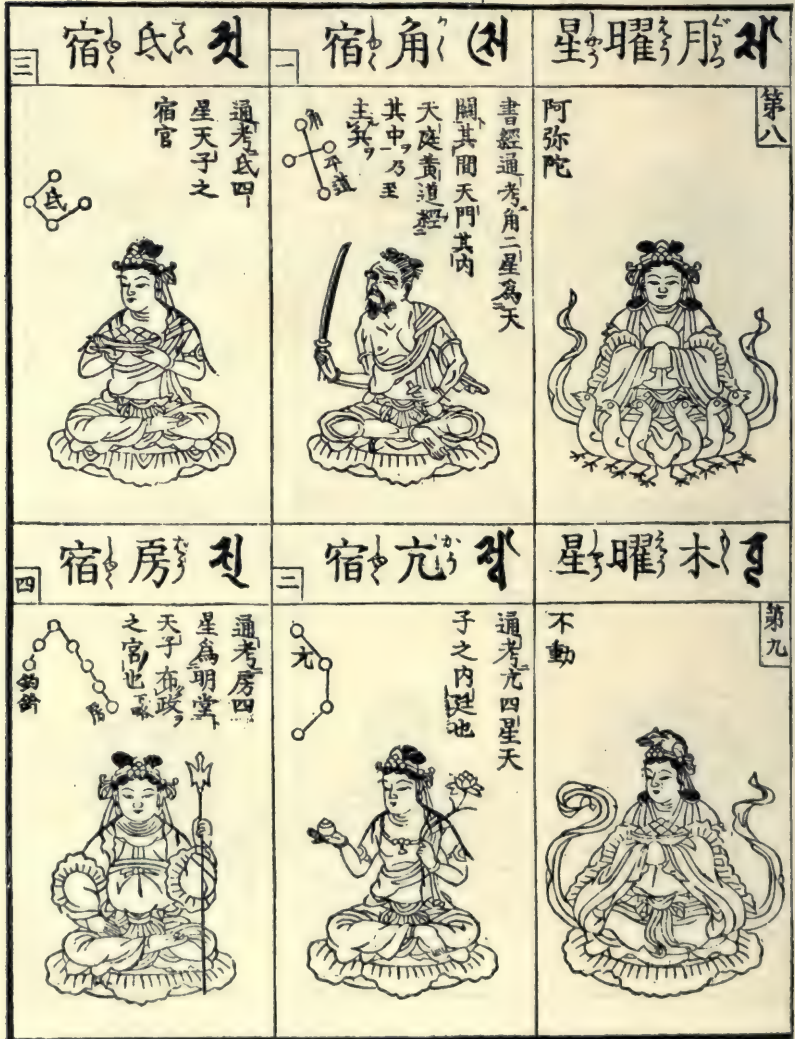 月曜星
第八
阿弥陀
角宿
一
書經通考角二星爲天
關其間天門其内
天庭黄道經
其中乃至
主兵
角
平道
氐宿
三
通考氐四
星天子之
宿官
氐
木曜星
第九
不動
亢宿
二
通考亢四星天
子之内廷也
亢
房宿
四
通考房四
星爲明堂
天子布政
之宮也
房
鈎鈐